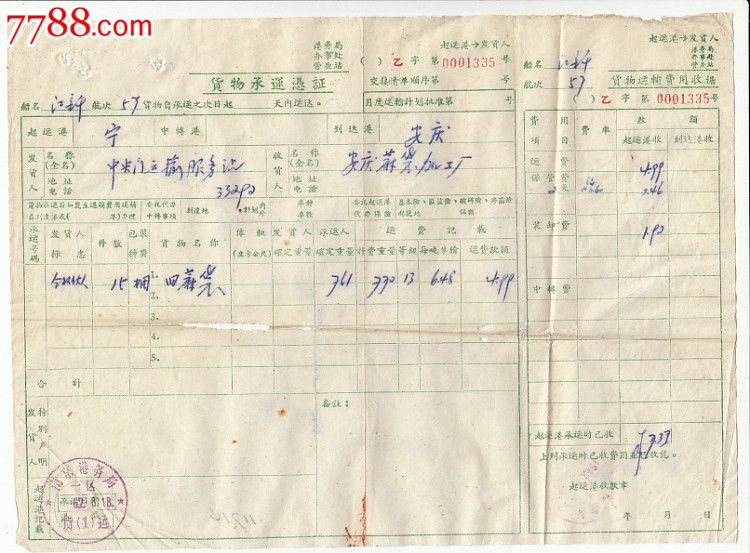 7788.com
港务局
办事处
营业站
起运港→发货人
( ) 乙 字 第 0001335 号
貨物承运憑証
交接清单顺序第 号
船名 江新 航次 57 貨物自承运之次日起 天內运达。
月度运輸計划批准第 号
起运港 宁 中轉港 到达港 安庆
发货人 名称(全名) 中央门运輸服务站
地址
电話 33292
收貨人 名称(全名) 安庆蔴袋加工厂
地址
电話
承运号碼 发貨人标志 件数 包装种类 貨物名称 体积(立方公尺) 发貨人确定重量 承运人确定重量 运費記載 計費重量 等級 每吨单价 运費款額
15 捆 1. 旧蔴袋 361 330 13 6.48 4.99
2.
3.
4.
5.
合計
特別声明
发貨人
备註:
起运港記載
南京港务局
一区
62.8.18.
货(1)运
起运港→发貨人
港务局
办事处
营业站
船名 江新
航次 57
貨物运輸費用收据
( ) 乙 字 第 0001335 号
費用項目 費率 款額
起运港收 到达港收
运費 4.99
保管費
2天 .46
装卸費 1.92
中轉費
起运港承运时已收 7.37
上列承运时已收費用並已收訖。
起运港收款章
年 月 日